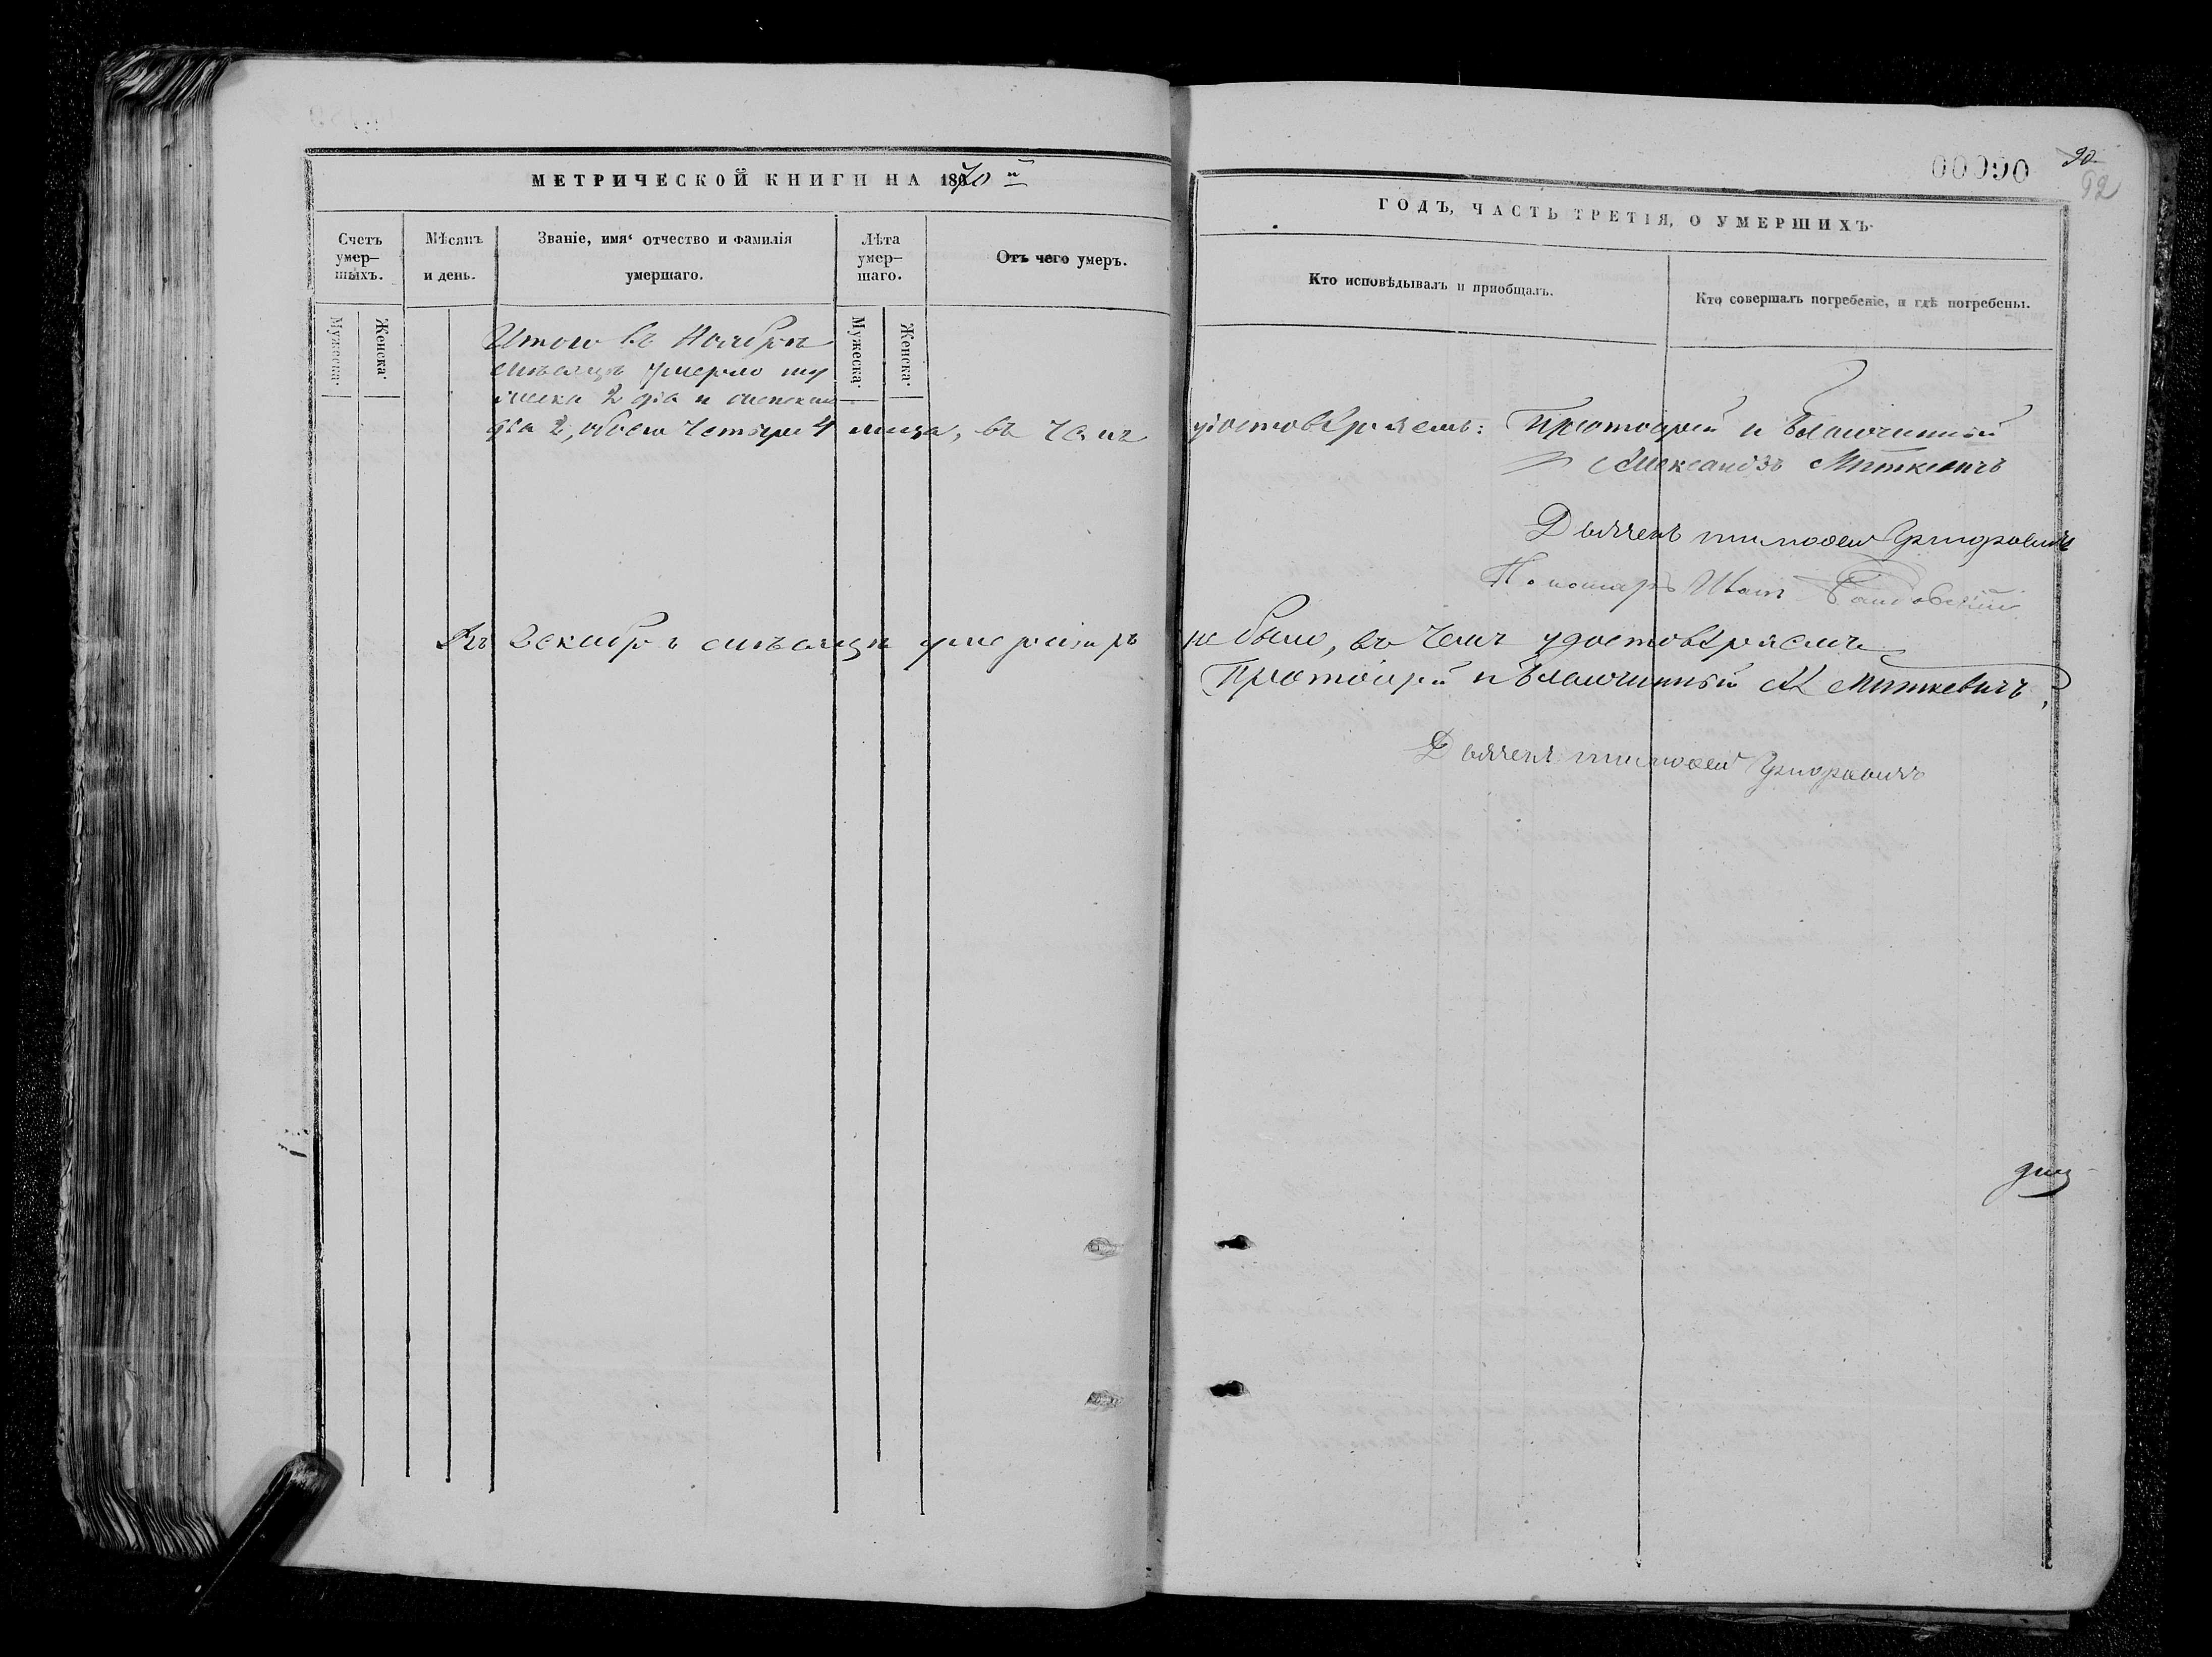 00090
90
92
МЕТРИЧЕСКОЙ КНИГИ НА 1870й
ГОДЪ, ЧАСТЬ ТРЕТІЯ, О УМЕРШИХЪ.
Счетъ умер-шыхъ.
Мѣсяцъ и день.
Званіе, имя, отчество и фамилія умершаго.
Лѣта умер-шаго.
Отъ чего умеръ.
Кто исповѣдывалъ и пріобщалъ.
Кто совершалъ погребеніе, и гдѣ погребены.
Мужеска.
Женска.
Мужеска.
Женска.
Итого въ Ноябрѣ
мѣсяцѣ умерло му
жеска 2 два и женска
два 2, обоего четыре 4 лица, въ чемъ удостовѣряемъ: Протоіерей и Благочинный
Александръ Миткевичъ
Дьячекъ Тимофей Григоровичъ
Пономаръ Иванъ
Въ Декабрѣ мѣсяцѣ умершихъ не было, въ чемъ удостовѣряемъ
Протоіерей и Благочинный А Миткевичъ
Дьячекъ Тимофей Григоровичъ